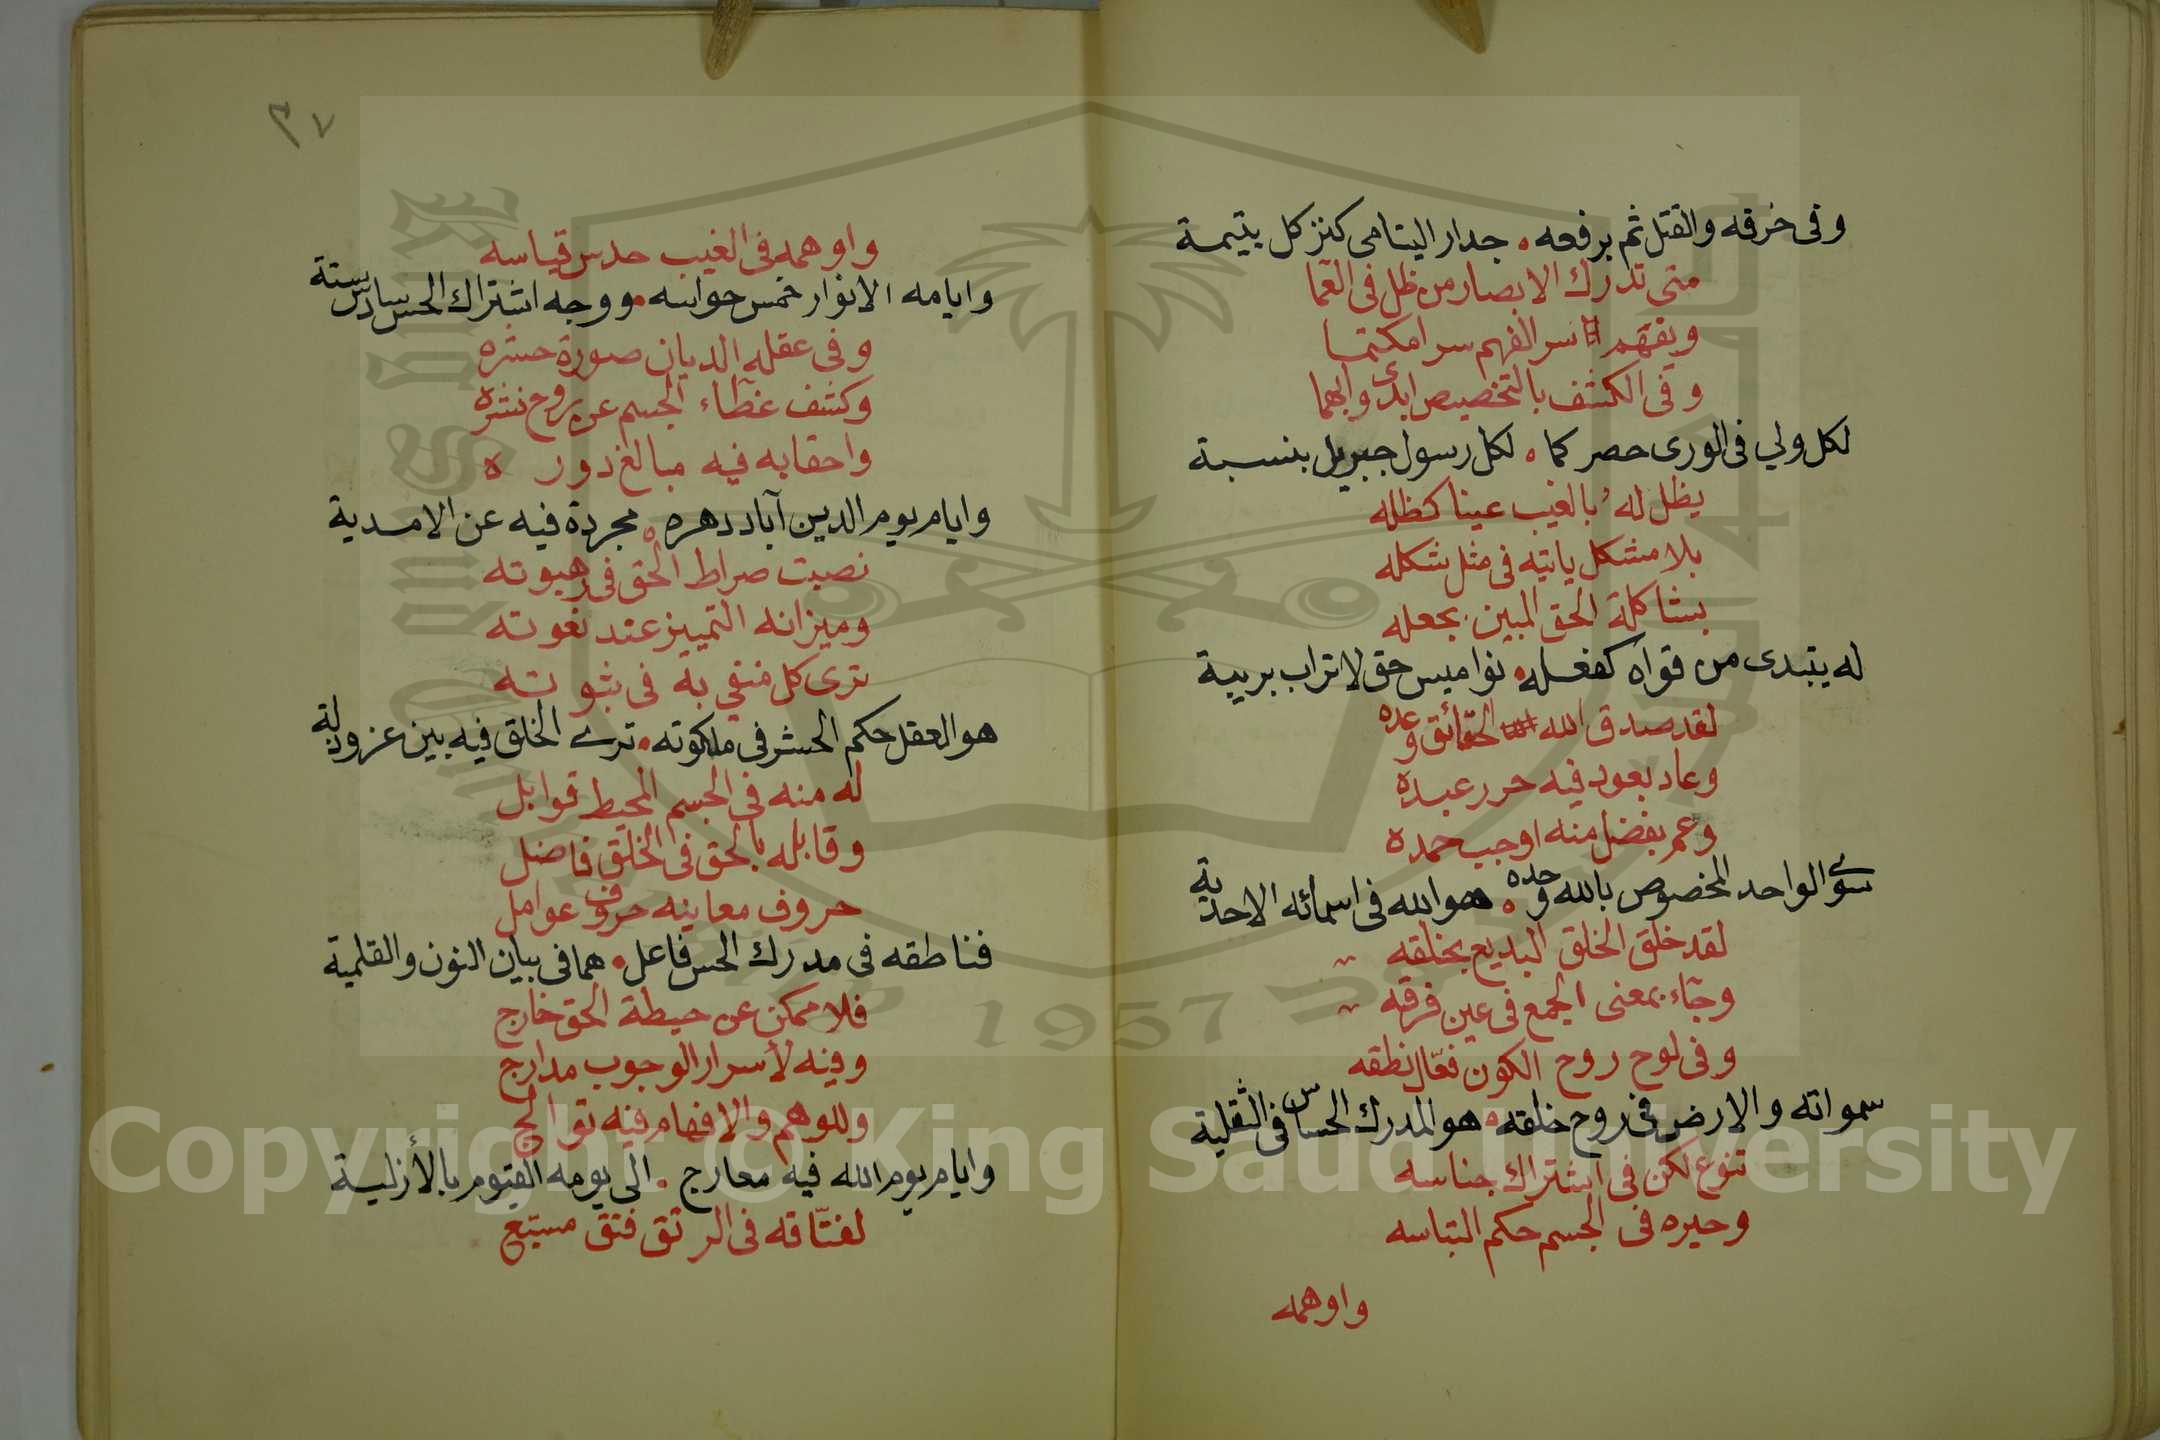 وفى خرقه والقتل ثم برفعه ۰ جدار اليتامى كنز كل يتيمة
متى تدرك الابصار من ظل فى العما
ويفهم سر الفهم سرا مكتما
وفى الكشف بالتخصيص ابدى وابهما
لكل ولي فى الورى حصر كما ۰ لكل رسول جبريل بنسبة
يظل له بالغيب عينا كظله
بلا مشكل ياتيه فى مثل شكله
بشاكلة الحق المبين بجعله
له يتبدى من قواه كفعله ۰ نواميس حق لا تراب بريبة
لقد صدق الله الحقائق وعده
وعاد بعود فيه حرر عبده
وعم بفضل منه اوجب حمده
سوى الواحد المخصوص بالله وحده ۰ هو الله فى اسمائه الاحدية
لقد خلق الخلق البديع بخلقه
وجاء بمعنى الجمع فى عين فرقه
وفى لوح روح الكون فعّال نطقه
سمواته والارض فى روح خلقه ۰ هو المدرك الحساس فى الثقلية
تنوع لكن فى اشتراك جناسه
وحيره فى الجسم حكم التباسه
واوهمه
٣٧
واوهمه فى الغيب حدس قياسه
وايامه الانوار خمس حواسه ۰ ووجه اشتراك الحس سادس ستة
وفى عقله الديان صورة حشره
وكشف غطاء الجسم عن روح نشره
واحقابه فيه مبالغ دوره
وايام يوم الدين آباد دهره ۰ مجردة فيه عن الامدية
نصبت صراط الحق فى رهبوته
وميزانه التمييز عند نعوته
ترى كل منفي به فى ثبوته
هو العقل حكم الحشر فى ملكوته ۰ ترى الخلق فيه بين عز وذلة
له منه فى الجسم المحيط قوابل
وقابله بالحق فى الخلق فاضل
حروف معانيه حروف عوامل
فناطقه فى مدرك الحس فاعل ۰ هما فى بيان النون والقلمية
فلا ممكن عن حيطة الحق خارج
وفيه لأسرار الوجوب مدارج
وللوهم والافهام فيه توالج
وايام يوم الله فيه معارج ۰ الى يومه القيوم بالأزلية
لفتّاقه فى الرتق فتق
Copyright © King Saud University
1957